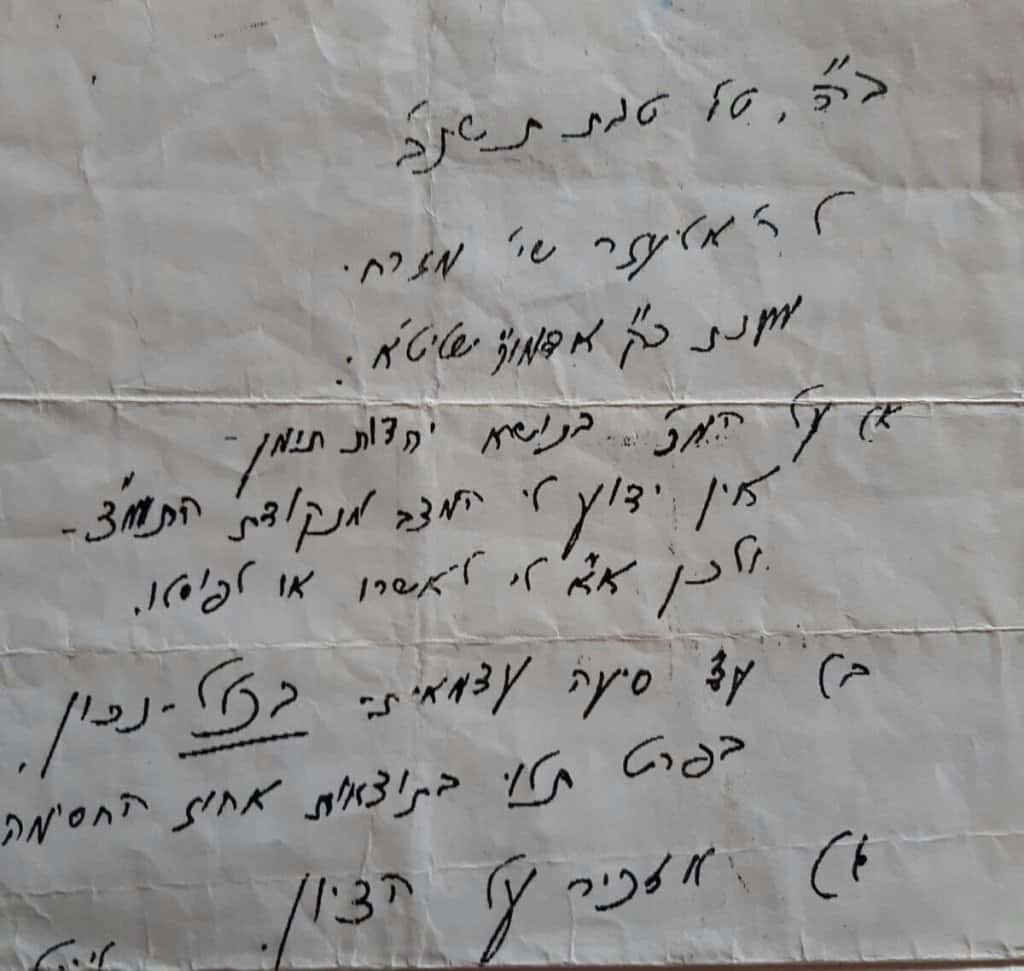 ב"ה, ט"ז טבת תשנ"ב
ל ר' אליעזר שי' מזרחי.
מענת כ"ק אדמו"ר שליט"א:
א) על המצ' בנושא יהדות תימן -
אין ידוע לי המצב מנקודת התעמ"צ -
ולכן א"א לי לאשרו או לפוסלו.
ב) ע"ד סיעה עצמאית - בכלל - נכון,
בפרט תלוי בתוצאות אחוז החסימה
ג) אזכיר על הציון.